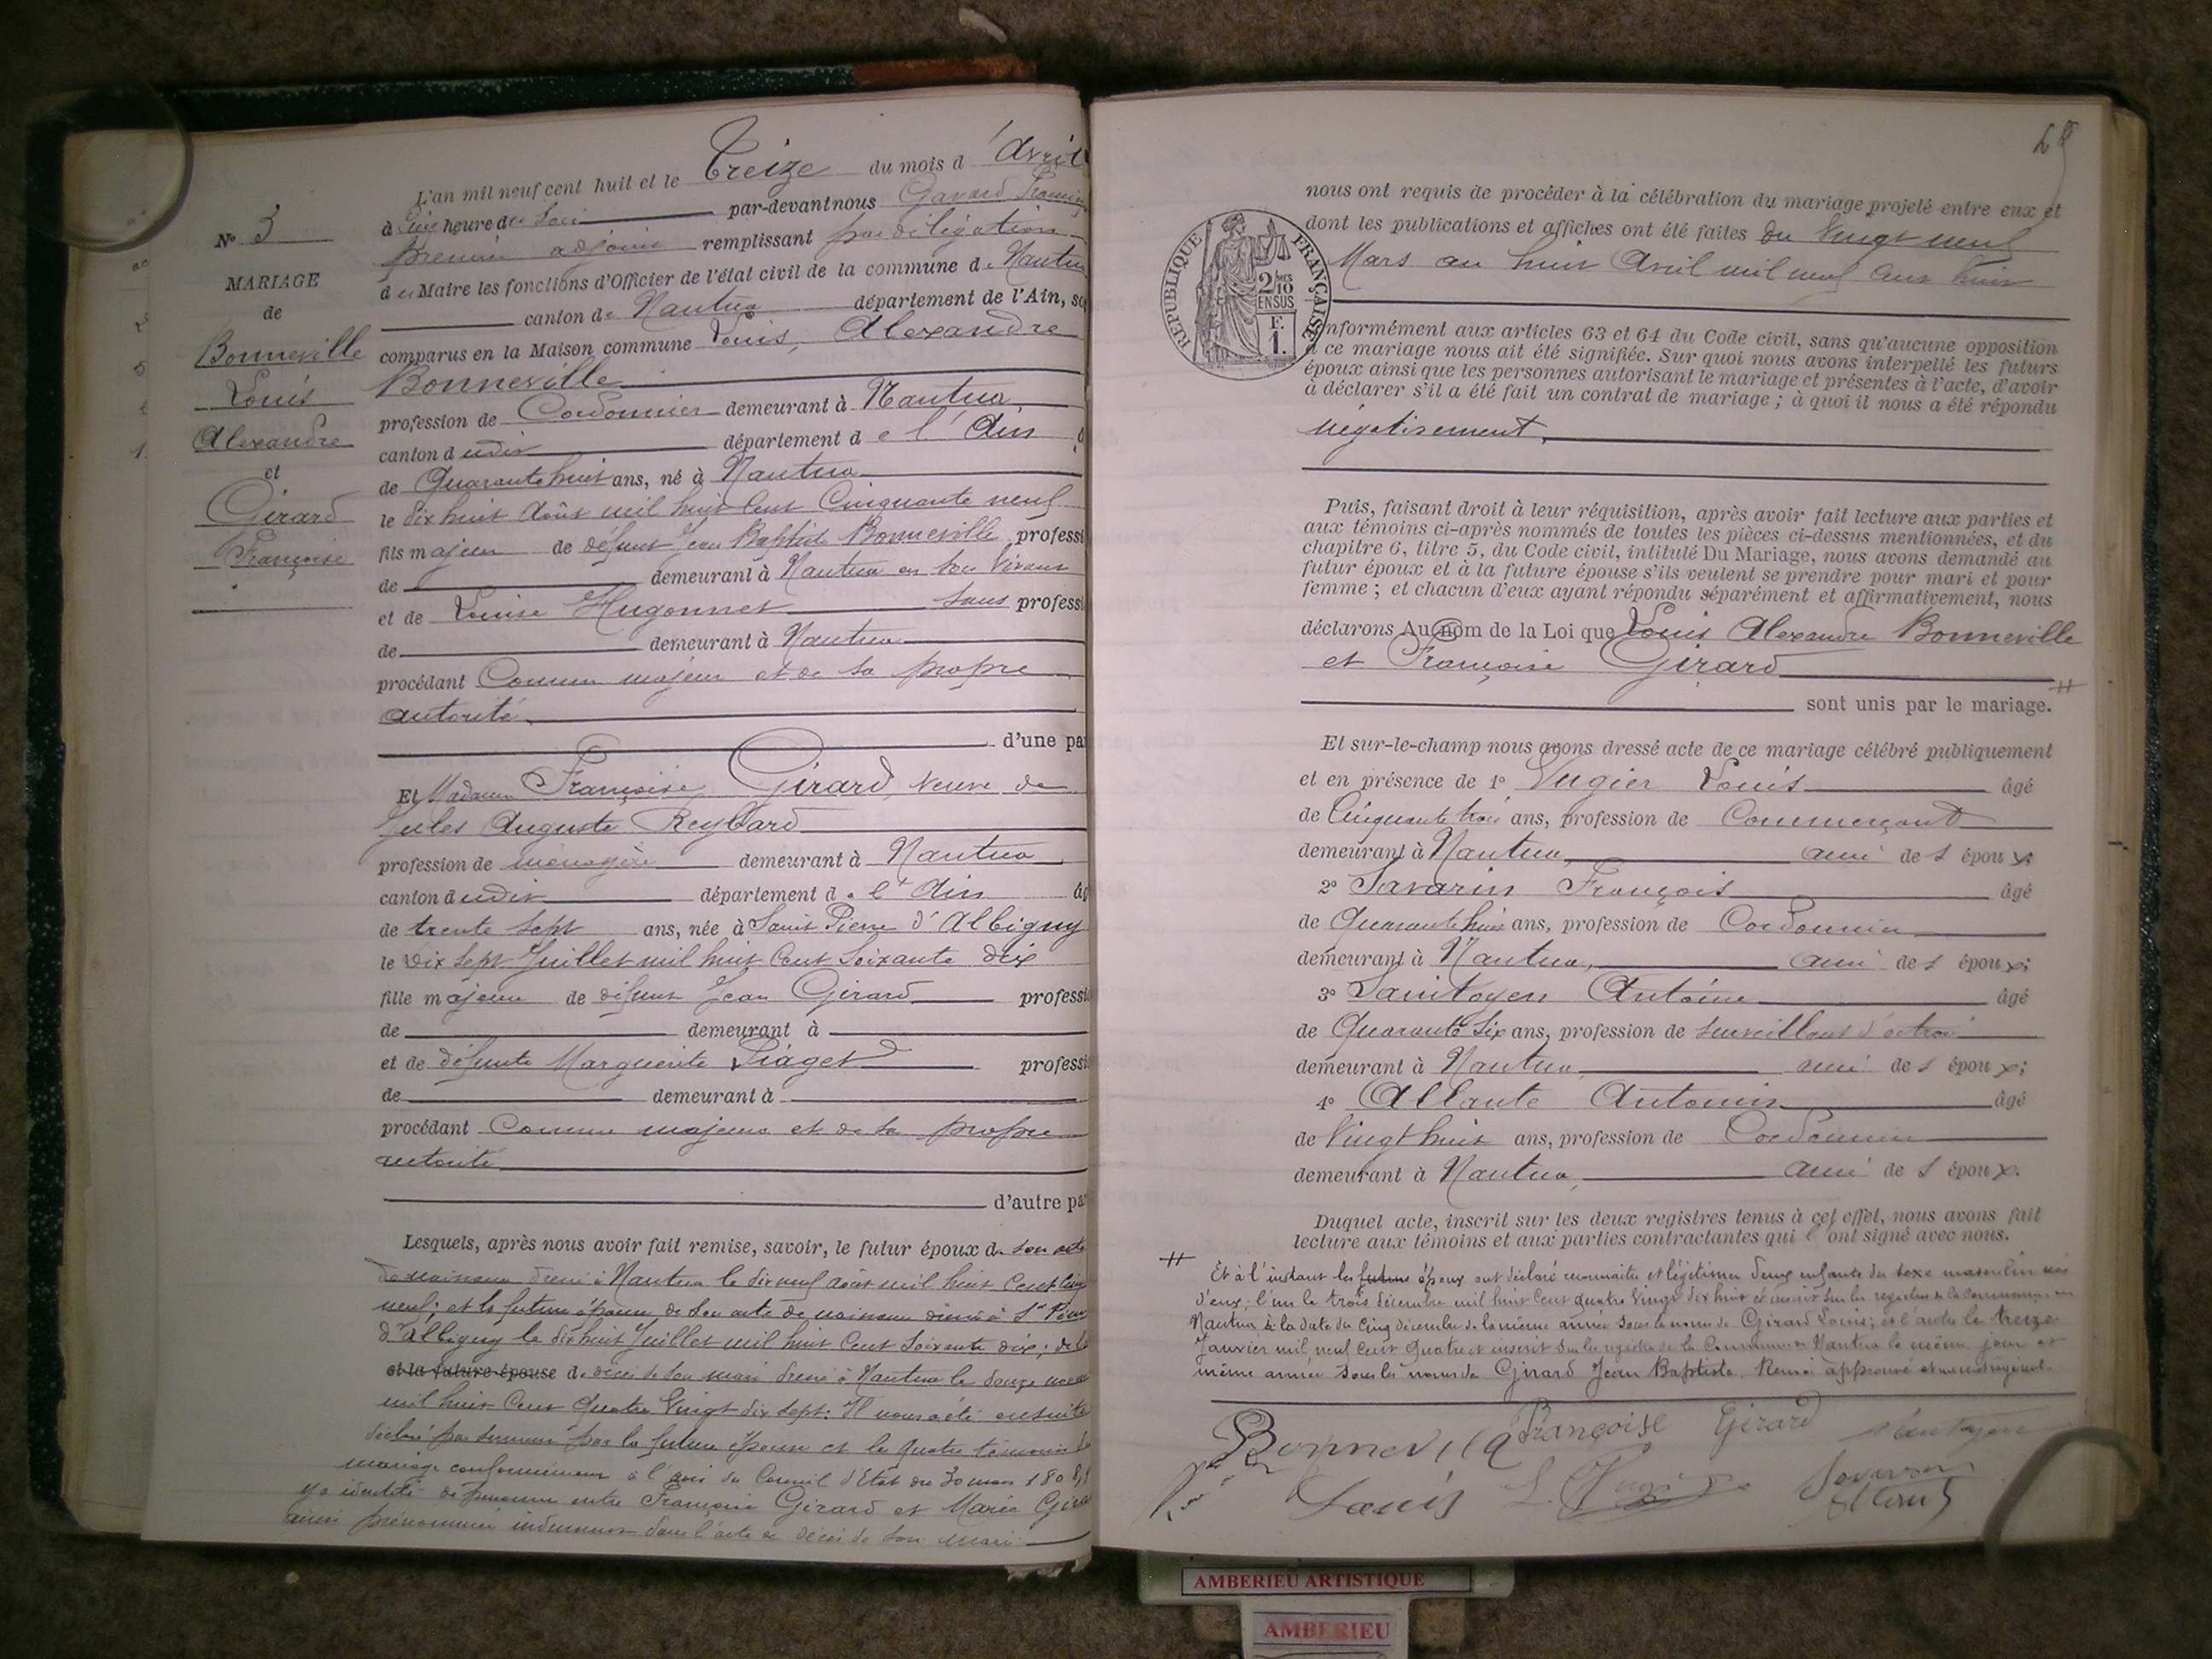 L'an mil neuf cent huit et le Treize du mois d'Avril
à heure du Soir par-devant nous Gavard
premier adjoint remplissant par délégation
du Maire les fonctions d'Officier de l'état civil de la commune de Nantua
canton de Nantua département de l'Ain, so
comparus en la Maison commune Louis, Alexandre
Bonneville
profession de Cordonnier demeurant à Nantua
canton dudit département de l'Ain
de Quarante huit ans, né à Nantua
le dix huit Août mil huit Cent Cinquante neuf
fils majeur de défunt Jean Baptiste Bonneville professi
de demeurant à Nantua en son vivant
et de Louise Hugonnet sans professi
de demeurant à Nantua
procédant Comme majeur et de sa propre
autorité
d'une pa
Et Madame Françoise Girard, Veuve de
Jules Auguste Reybard
profession de ménagère demeurant à Nantua
canton dudit département de l'Ain âg
de trente sept ans, née à Saint Pierre d'Albigny
le Dix Sept Juillet mil huit Cent Soixante dix
fille majeure de défunt Jean Girard professi
de demeurant à
et de défunte Marguerite Piaget professi
de demeurant à
procédant Comme majeure et de sa propre
autorité
d'autre pa
Lesquels, après nous avoir fait remise, savoir, le futur époux de son acte
de naissance dressé à Nantua le dix neuf Août mil huit Cent Cinq
neuf; et la future épouse de son acte de naissance dressé à St Pierre
d'Albigny le dix huit Juillet mil huit Cent Soixante dix;
et la future épouse de décès de son mari dressé à Nantua le douze
mil huit Cent Quatre Vingt dix Sept. Il nous a été ensuite
déclaré par serment par la future épouse et les quatre témoins du
mariage conformément à l'avis du Conseil d'Etat du 30 mars 1808
y a identité de personne entre Françoise Girard et Marie Gira
ainsi prénommée indûment dans l'acte de décès de son mari
No 3
MARIAGE
de
Bonneville
Louis
Alexandre
et
Girard
Françoise
nous ont requis de procéder à la célébration du mariage projeté entre eux et
dont les publications et affiches ont été faites du Vingt neuf
Mars au huit Avril mil neuf Cent huit
REPUBLIQUE FRANÇAISE
2/10 MES
EN SUS
F.
1.
nformément aux articles 63 et 64 du Code civil, sans qu'aucune opposition
à ce mariage nous ait été signifiée. Sur quoi nous avons interpellé les futurs
époux ainsi que les personnes autorisant le mariage et présentes à l'acte, d'avoir
à déclarer s'il a été fait un contrat de mariage ; à quoi il nous a été répondu
négativement,
Puis, faisant droit à leur réquisition, après avoir fait lecture aux parties et
aux témoins ci-après nommés de toutes les pièces ci-dessus mentionnées, et du
chapitre 6, titre 5, du Code civil, intitulé Du Mariage, nous avons demandé au
futur époux et à la future épouse s'ils veulent se prendre pour mari et pour
femme ; et chacun d'eux ayant répondu séparément et affirmativement, nous
déclarons Au nom de la Loi que Louis Alexandre Bonneville
et Françoise Girard
sont unis par le mariage.
Et sur-le-champ nous avons dressé acte de ce mariage célébré publiquement
et en présence de 1o Vugier Louis âgé
de Cinquante trois ans, profession de Commerçant
demeurant à Nantua, ami des époux;
2o Savarin François âgé
de Quarante huit ans, profession de Cordonnier
demeurant à Nantua, ami des époux;
3o Santoyen Antoine âgé
de Quarante Six ans, profession de Surveillant d'octroi
demeurant à Nantua, ami des époux;
4o Allante Antonin âgé
de Vingt huit ans, profession de Cordonnier
demeurant à Nantua, ami des époux.
Duquel acte, inscrit sur les deux registres tenus à cet effet, nous avons fait
lecture aux témoins et aux parties contractantes qui l'ont signé avec nous.
Et à l'instant les futurs époux ont déclaré reconnaître et légitimer deux enfants du sexe masculin nés
d'eux, l'un le trois décembre mil huit Cent quatre Vingt dix huit et inscrit sur les registres de la Commune de
Nantua à la date du Cinq décembre de la même année sous le nom de Girard Louis; et l'autre le treize
Janvier mil neuf Cent Quatre et inscrit sur les registres de la Commune de Nantua le même jour et
même année sous les noms de Girard Jean Baptiste. Renvoi approuvé
Bonneville Françoise Girard Santoyen
Louis Savarin
AMBERIEU ARTISTIQUE
AMBERIEU